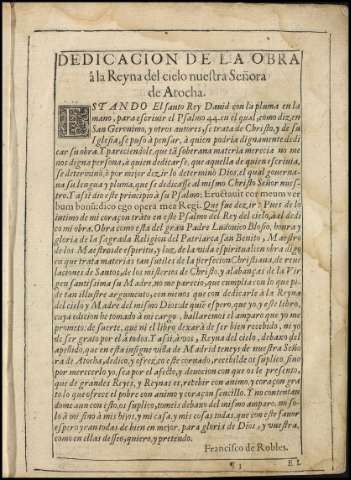 DEDICACION DE LA OBRA
â la Reyna del cielo nuestra Señora
de Atocha.
ESTANDO El santo Rey Dauid con la pluma en la
mano, para escriuir el Psalmo 44. en el qual, como diz, en
San Geronimo, y otros autores, se trata de Christo, y de su
Iglesia, se puso à pensar, à quien podria dignamente dedi
car su obra. Y pareciendole, que tã soberana materia merecia no me
nos digna persona, à quien dedicarse, que aquella de quien escriuia,
se determinò, ò por mejor dezir lo determinò Dios, el qual gouerna-
ua su lengua y pluma, que se dedicasse al mismo Christo Señor nues-
tro. Y assi dio este principio à su Psalmo. Eructauit cor meum ver
bum bonũ: dico ego opera mea Regi. Que fue dezir: Pues de lo
intimo de mi coraçon trato en este Psalmo del Rey del cielo, à el dedi
co mi obra. Como esta del gran Padre Ludouico Blosio, honra y
gloria de la sagrada Religion del Patriarca san Benito, Maestro
de los Maestros de espiritu, y luz de la vida espiritual, en obra dign
en que trata materias tan sutiles de la perfeccion Christiana, de reue
laciones de Santos, de los misterios de Christo, y alabanças de la Vir
gen santissima su Madre, no me parecio, que cumplia con lo que pi-
de tan illustre argumento, con menos que con dedicarle à la Reyna
del cielo y Madre del mismo Dios: de quiẽ espero, que yo, y este libro,
cuya edicion he tomado à mi cargo, hallaremos el amparo que yo me
prometo: de suerte, que ni el libro dexarà de ser bien recebido, ni yo
de ser grato por el à todos. Y assi, à vos, Reyna del cielo, debaxo del
apellido, que en esta insigne villa de Madrid teneys de nuestra Seño
ra de Atocha, dedico, y ofrezco este cornado, recebilde os suplico, sino
por merecerlo yo, sea por el afecto, y deuocion con que os le presento,
que de grandes Reyes, y Reynas es, recebir con animo, y coraçon gra
to lo que ofrece el pobre con animo y coraçon sencillo. Y no contentan
dome aun con esto, os suplico, tomeis debaxo del mismo amparo, no so
lo à mi sino à mis hijos, y mi casa, y mis cosas todas, que con este fauor
espero yran todas de bien en mejor, para gloria de Dios, y vuestra,
como en ellas desseo, quiero, y pretendo.
Francisco de Robles.
¶ 3
EL